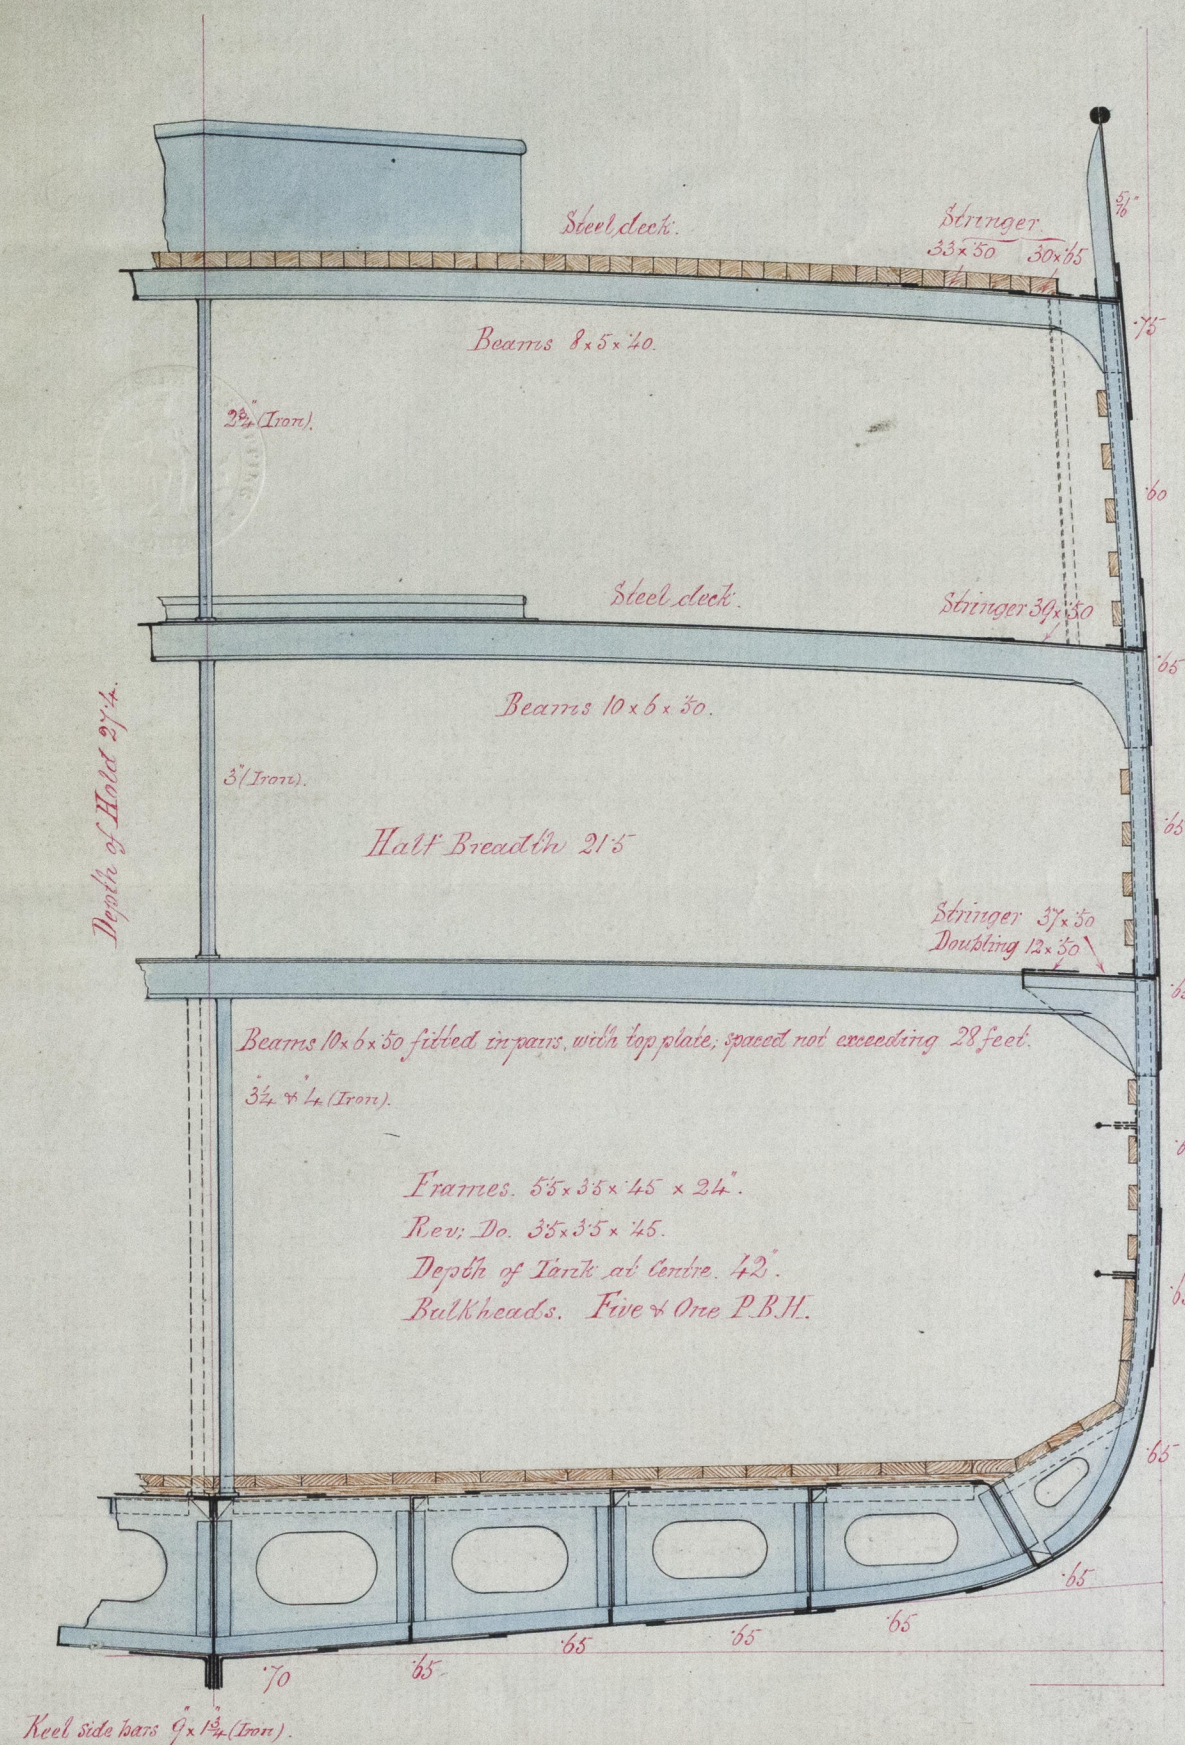 5/16"
Steel deck.
Stringer
33 x ·50 30 x ·65
·75
Beams 8 x 5 x ·40.
2¾" (Iron).
·60
Steel deck.
Stringer 39 x ·50
·65
Beams 10 x 6 x ·50.
Depth of Hold 27·4.
3" (Iron).
·65
Half Breadth 21·5
Stringer 37 x ·50
Doubling 12 x ·50
Beams 10 x 6 x ·50 fitted in pairs, with top plate; spaced not exceeding 28 feet.
3¼" & 4" (Iron).
Frames. 5·5 x 3·5 x ·45 x 24".
Rev; Do. 3·5 x 3·5 x ·45.
Depth of Tank at Centre. 42".
Bulkheads. Five & One P.B.H.
·65
·65
·65
·65
·65
·65
·70
Keel side bars 9" x 1¾" (Iron).